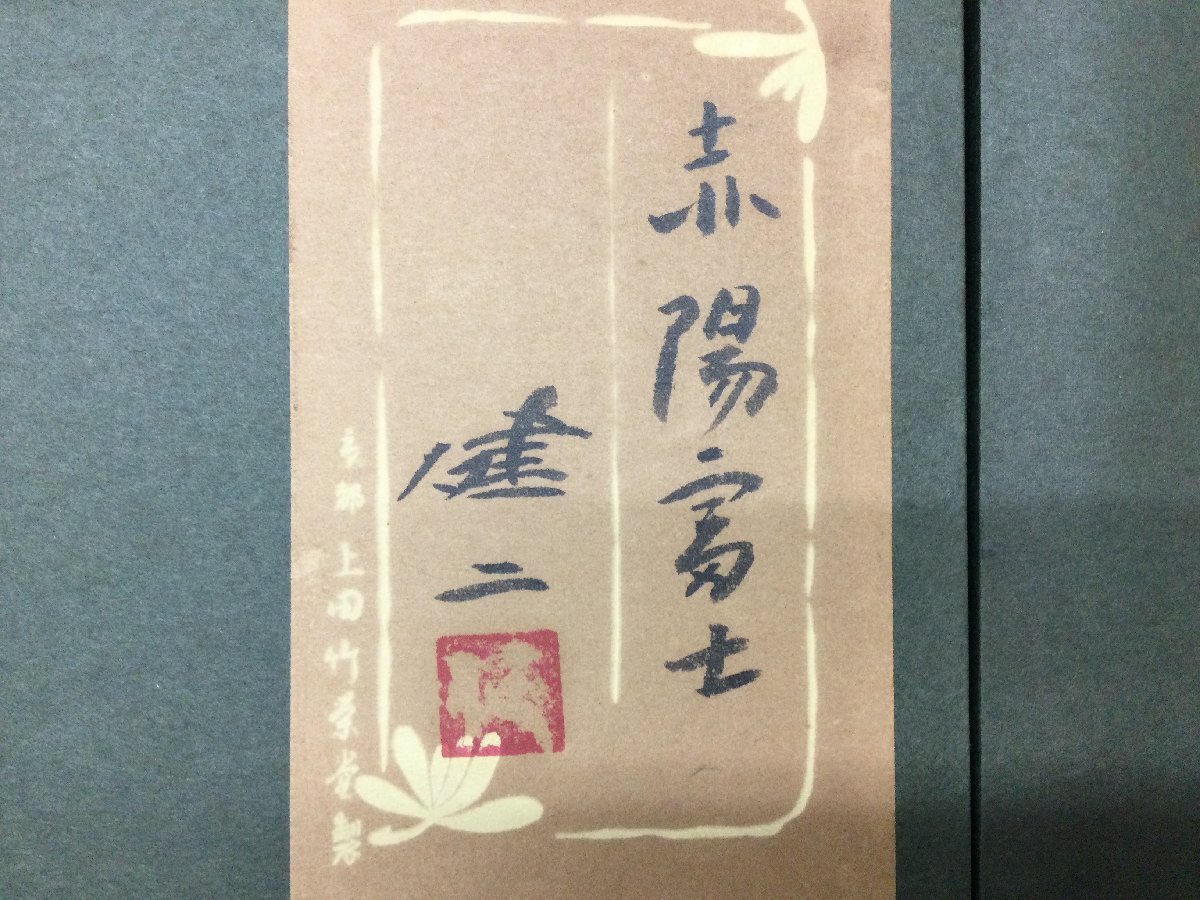 赤陽富士
健二
京都 上田竹栄堂製